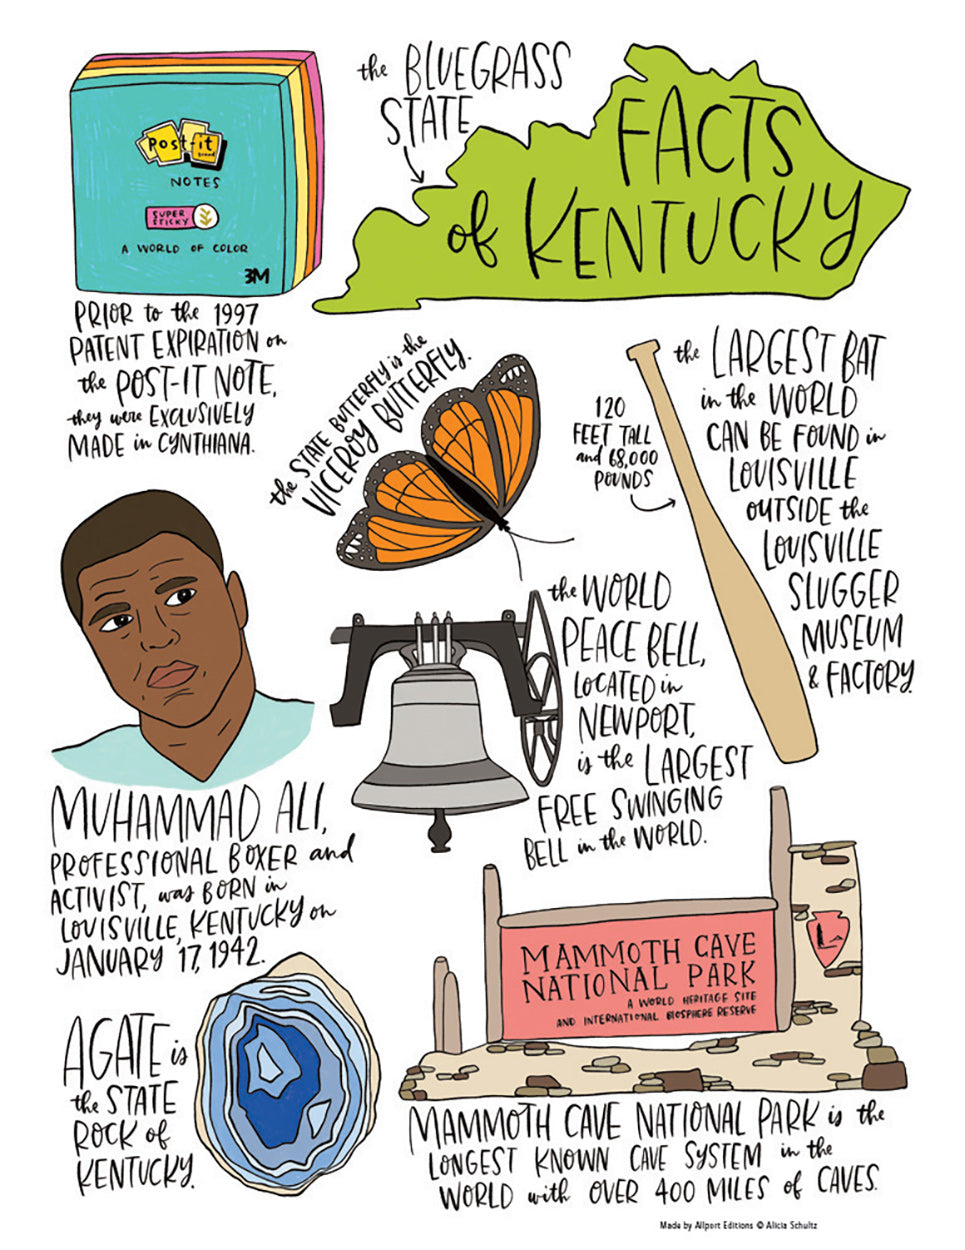 the BLUEGRASS
STATE
FACTS
of KENTUCKY
Post-it
brand
NOTES
SUPER
STICKY
A WORLD OF COLOR
3M
PRIOR to the 1997
PATENT EXPIRATION on
the POST-IT NOTE,
they were EXCLUSIVELY
MADE in CYNTHIANA.
the STATE BUTTERFLY is the
VICEROY BUTTERFLY.
120
FEET TALL
and 68,000
POUNDS
the LARGEST BAT
in the WORLD
CAN BE FOUND in
LOUISVILLE
OUTSIDE the
LOUISVILLE
SLUGGER
MUSEUM
& FACTORY.
the WORLD
PEACE BELL,
LOCATED in
NEWPORT,
is the LARGEST
FREE SWINGING
BELL in the WORLD.
MUHAMMAD ALI,
PROFESSIONAL BOXER and
ACTIVIST, was BORN in
LOUISVILLE, KENTUCKY on
JANUARY 17, 1942.
AGATE is
the STATE
ROCK of
KENTUCKY.
MAMMOTH CAVE
NATIONAL PARK
A WORLD HERITAGE SITE
AND INTERNATIONAL BIOSPHERE RESERVE
MAMMOTH CAVE NATIONAL PARK is the
LONGEST KNOWN CAVE SYSTEM in the
WORLD with OVER 400 MILES of CAVES.
Made by Allport Editions © Alicia Schultz